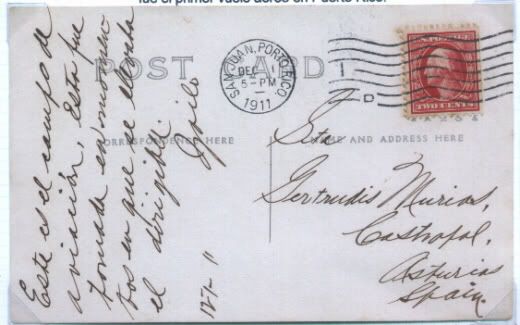 fue el primer vuelo aereo en Puerto Rico.
POST CARD
SAN JUAN, PORTO RICO.
DEC 1
5-PM
1911
D
TWO CENTS
CORRESPONDENCE HERE
NAME AND ADDRESS HERE
Este es el campo de
aviación, esta fue
tomada en momen
tos en que se elevaba
el dirigible.
12-1-11
Srta
Gertrudis Murias,
Castropol,
Asturias
Spain.